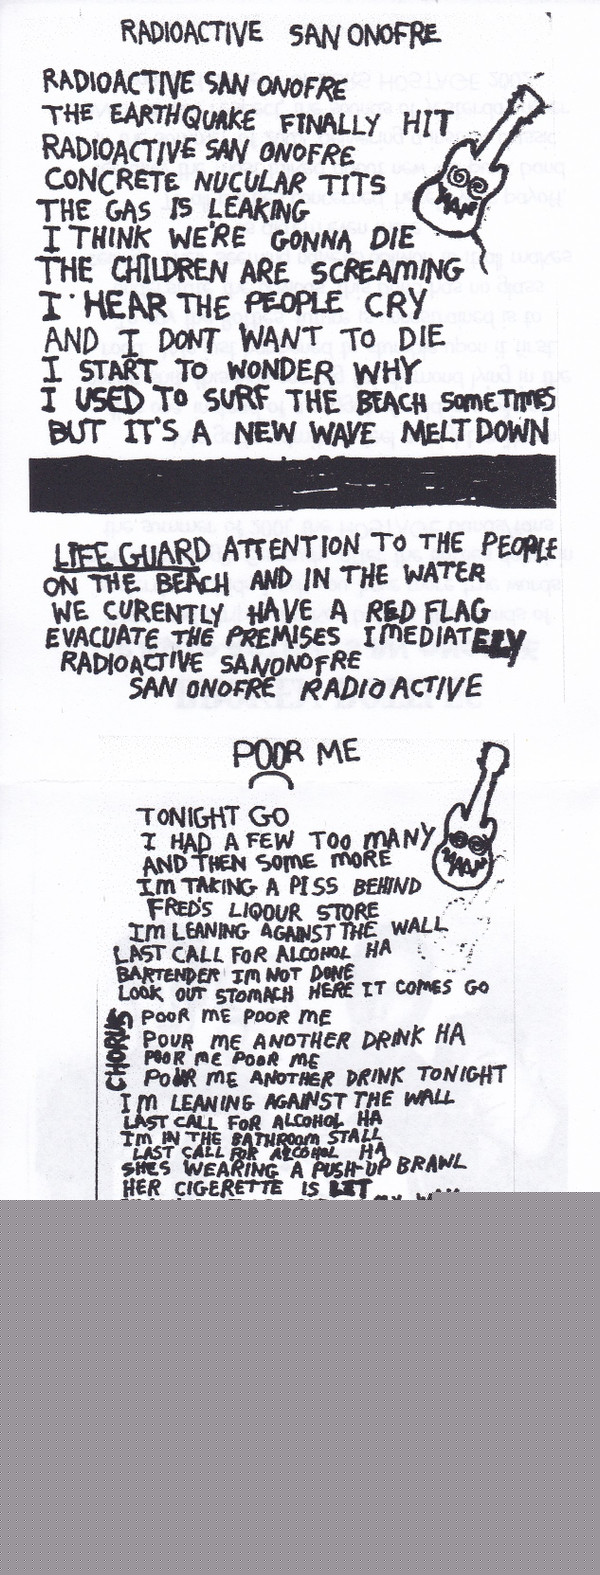 RADIOACTIVE SAN ONOFRE
RADIOACTIVE SAN ONOFRE
THE EARTHQUAKE FINALLY HIT
RADIOACTIVE SAN ONOFRE
CONCRETE NUCULAR TITS
THE GAS IS LEAKING
I THINK WE'RE GONNA DIE
THE CHILDREN ARE SCREAMING
I HEAR THE PEOPLE CRY
AND I DON'T WANT TO DIE
I START TO WONDER WHY
I USED TO SURF THE BEACH SOMETIMES
BUT IT'S A NEW WAVE MELTDOWN
LIFE GUARD ATTENTION TO THE PEOPLE
ON THE BEACH AND IN THE WATER
WE CURENTLY HAVE A RED FLAG
EVACUATE THE PREMISES IMEDIATELY
RADIOACTIVE SANONOFRE
SAN ONOFRE RADIOACTIVE
POOR ME
TONIGHT GO
I HAD A FEW TOO MANY
AND THEN SOME MORE
IM TAKING A PISS BEHIND
FRED'S LIQOUR STORE
IM LEANING AGAINST THE WALL
LAST CALL FOR ALCOHOL HA
BARTENDER IM NOT DONE
LOOK OUT STOMACH HERE IT COMES GO
CHORUS
POOR ME POOR ME
POUR ME ANOTHER DRINK HA
POOR ME POOR ME
POUR ME ANOTHER DRINK TONIGHT
IM LEANING AGAINST THE WALL
LAST CALL FOR ALCOHOL HA
IM IN THE BATHROOM STALL
LAST CALL FOR ALCOHOL HA
SHES WEARING A PUSH-UP BRAWL
HER CIGERETTE IS LIT